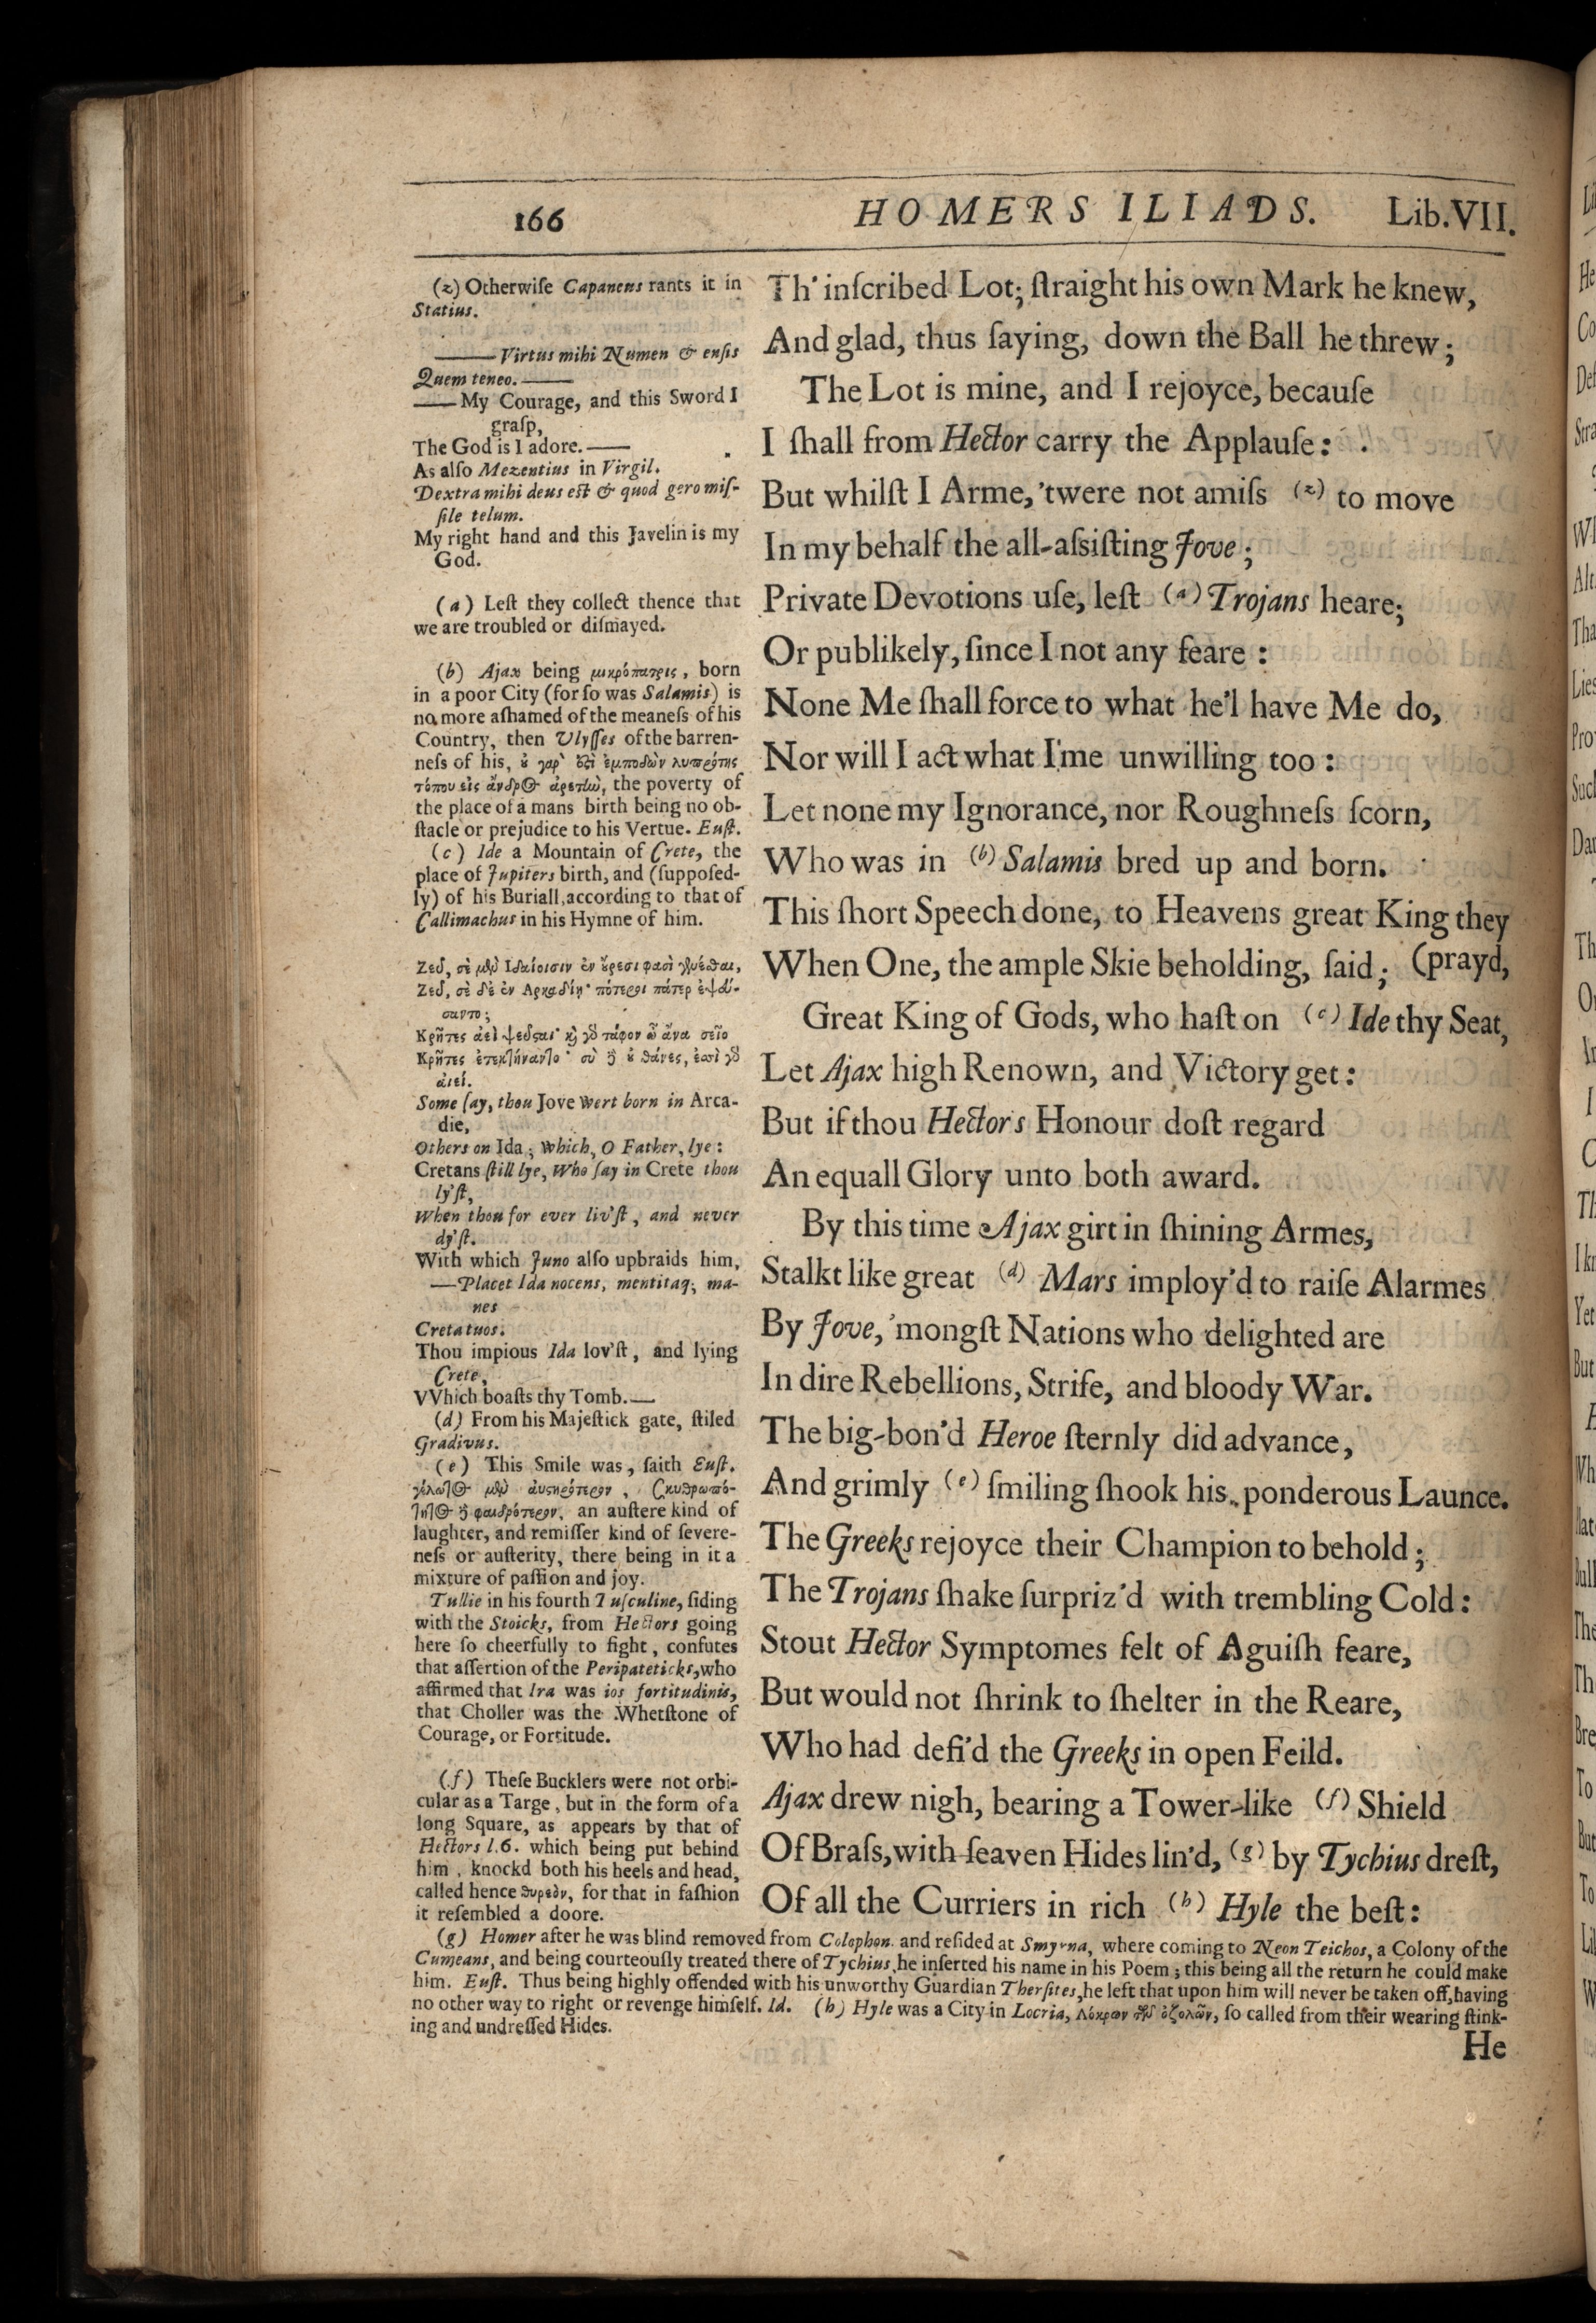 166 HOMERS ILIADS. Lib. VII.
Th' inſcribed Lot; ſtraight his own Mark he knew,
And glad, thus ſaying, down the Ball he threw;
The Lot is mine, and I rejoyce, becauſe
I ſhall from Hector carry the Applauſe:
But whilſt I Arme, 'twere not amiſs (z) to move
In my behalf the all-aſsiſting Jove;
Private Devotions uſe, leſt (a) Trojans heare;
Or publikely, ſince I not any feare:
None Me ſhall force to what he'l have Me do,
Nor will I act what I'me unwilling too:
Let none my Ignorance, nor Roughneſs ſcorn,
Who was in (b) Salamis bred up and born.
This ſhort Speech done, to Heavens great King they
When One, the ample Skie beholding, ſaid; (prayd,
Great King of Gods, who haſt on (c) Ide thy Seat,
Let Ajax high Renown, and Victory get:
But if thou Hectors Honour doſt regard
An equall Glory unto both award.
By this time Ajax girt in ſhining Armes,
Stalkt like great (d) Mars imploy'd to raiſe Alarmes
By Jove, 'mongſt Nations who delighted are
In dire Rebellions, Strife, and bloody War.
The big-bon'd Heroe ſternly did advance,
And grimly (e) ſmiling ſhook his ponderous Launce.
The Greeks rejoyce their Champion to behold;
The Trojans ſhake ſurpriz'd with trembling Cold:
Stout Hector Symptomes felt of Aguiſh feare,
But would not ſhrink to ſhelter in the Reare,
Who had defi'd the Greeks in open Feild.
Ajax drew nigh, bearing a Tower-like (f) Shield
Of Braſs, with ſeaven Hides lin'd, (g) by Tychius dreſt,
Of all the Curriers in rich (h) Hyle the beſt:
(z) Otherwiſe Capaneus rants it in
Statius.
——Virtus mihi Numen & enſis
Quem teneo.——
——My Courage, and this Sword I
graſp,
The God is I adore.——
As alſo Mezentius in Virgil.
Dextra mihi deus eſt & quod gero miſ-
ſile telum.
My right hand and this Javelin is my
God.
(a) Leſt they collect thence that
we are troubled or diſmayed.
(b) Ajax being μικρόπατρις, born
in a poor City (for ſo was Salamis) is
no more aſhamed of the meaneſs of his
Country, then Ulyſſes of the barren-
neſs of his, ἐμποδὼν λυπρότης
τόπου εἰς ἀρετὴν, the poverty of
the place of a mans birth being no ob-
ſtacle or prejudice to his Vertue. Euſt.
(c) Ide a Mountain of Crete, the
place of Jupiters birth, and (ſuppoſed-
ly) of his Buriall, according to that of
Callimachus in his Hymne of him.
Ζεῦ, σὲ μὲν Ἰδαίοισιν ἐν οὔρεσι φασὶ γενέσθαι,
Ζεῦ, σὲ δ' ἐν Ἀρκαδίῃ· πότεροι πάτερ ἐψεύ-
σαντο;
Κρῆτες ἀεὶ ψεῦσται· καὶ γὰρ τάφον ὦ ἄνα σεῖο
Κρῆτες ἐτεκτήναντο· σὺ δ' οὐ θάνες, ἐσσὶ γὰρ
αἰεί.
Some ſay, thou Jove wert born in Arca-
die,
Others on Ida; which, O Father, lye:
Cretans ſtill lye, Who ſay in Crete thou
ly'ſt,
When thou for ever liv'ſt, and never
dy'ſt.
With which Juno alſo upbraids him,
——Placet Ida nocens, mentitaq; ma-
nes
Creta tuos.
Thou impious Ida lov'ſt, and lying
Crete,
VVhich boaſts thy Tomb.——
(d) From his Majeſtick gate, ſtiled
Gradivus.
(e) This Smile was, ſaith Euſt.
an auſtere kind of
laughter, and remiſſer kind of ſevere-
neſs or auſterity, there being in it a
mixture of paſſion and joy.
Tullie in his fourth Tuſculine, ſiding
with the Stoicks, from Hectors going
here ſo cheerfully to fight, confutes
that aſſertion of the Peripateticks, who
affirmed that Ira was ios fortitudinis,
that Choller was the Whetſtone of
Courage, or Fortitude.
(f) Theſe Bucklers were not orbi-
cular as a Targe, but in the form of a
long Square, as appears by that of
Hectors l.6. which being put behind
him, knockd both his heels and head,
called hence θυρεὸν, for that in faſhion
it reſembled a doore.
(g) Homer after he was blind removed from Colophon and reſided at Smyrna, where coming to Neon Teichos, a Colony of the
Cumeans, and being courteouſly treated there of Tychius, he inſerted his name in his Poem; this being all the return he could make
him. Euſt. Thus being highly offended with his unworthy Guardian Therſites, he left that upon him will never be taken off, having
no other way to right or revenge himſelf. Id. (h) Hyle was a City in Locria, Λόκρων τῶν ὀζολῶν, ſo called from their wearing ſtink-
ing and undreſſed Hides.
He